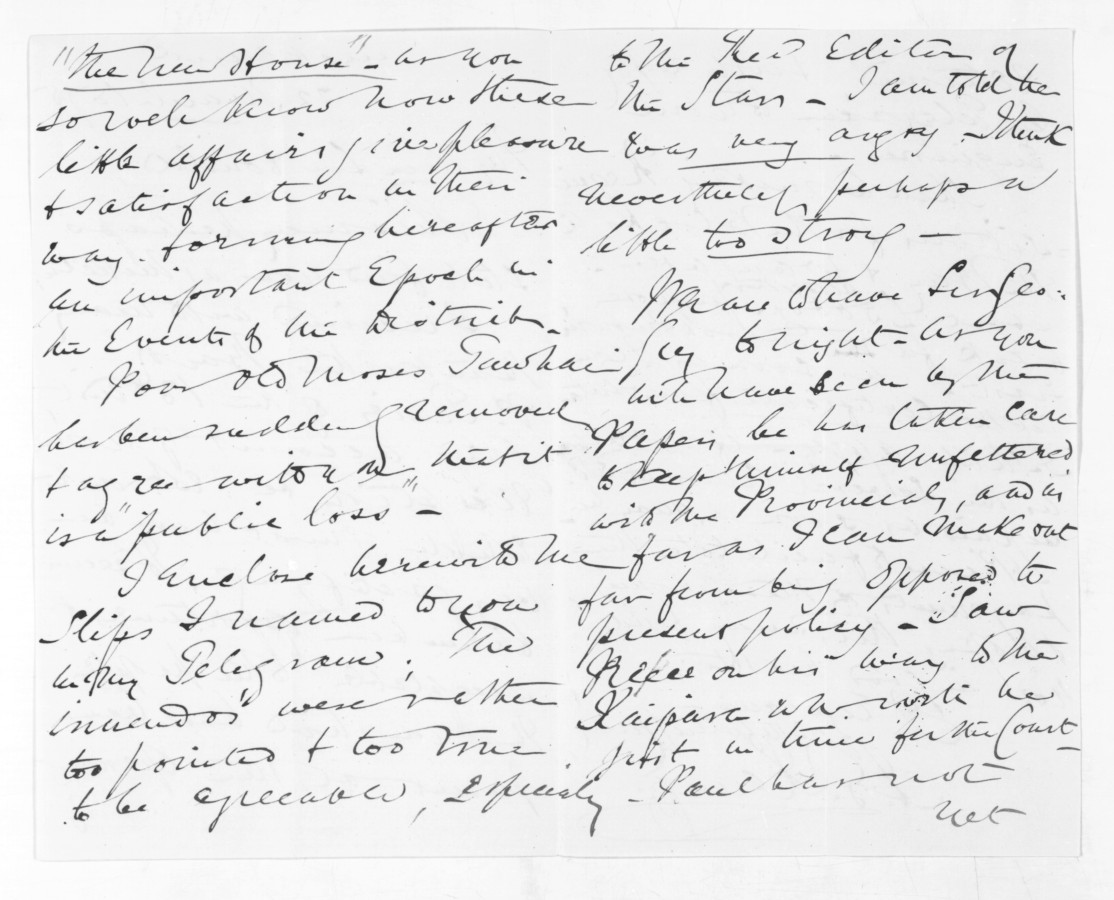 "The new House" - as you
so well know how these
little affairs give pleasure
& satisfaction in their
way forming hereafter
an important Epoch in
the Events of the District -
Poor old Moses Tawhai
has been suddenly removed
& agree with you that it
is a "public loss" -
I enclose herewith the
Slips I named to you
in my Telegram. The
inuendos were rather
too pointed & too true
to be agreeable, especially
to the Editor of
the Star - I am told he
was very angry - I think
nevertheless, perhaps a
little too strong -
We are to have Sir Geo.
Grey tonight - as you
will have seen by the
Papers he has taken care
to keep himself unfettered
with the Provincials, and as
far as I can make out
far from being opposed to
present policy - Saw
on his way to the
Kaipara who will be
just in time for the Court -
- Paul has not
yet